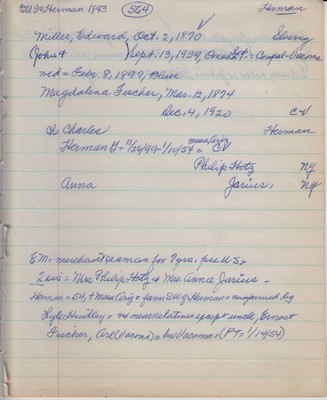 Herman 1893 564 Herman
Miller, Edward, Oct. 2, 1870
(John + ) Sept. 13, 1939, = Compal-Vacoma
med = Feb. 8, 1897, Blair
Magdalena Fischer, Mar. 12, 1874
Dec. 4, 1920 CV
Charles Herman
Mesa, Ariz
Herman G = 11/26/99 - 1/10/54 = CV
Philip Hotz NY
Anna Jarius, NY
EM = merchant seaman for 7 yrs; pre U S =
2 sis = Mrs Philip Hotz + Mrs Anna Jarius -
Herman = 54, + Mesa Ariz = farm SW of Herman = unmarried
Lyle Hindley = no near relatives except uncle, Ernest
Fischer, = bur Vacoma = (PT = 1/14/54)